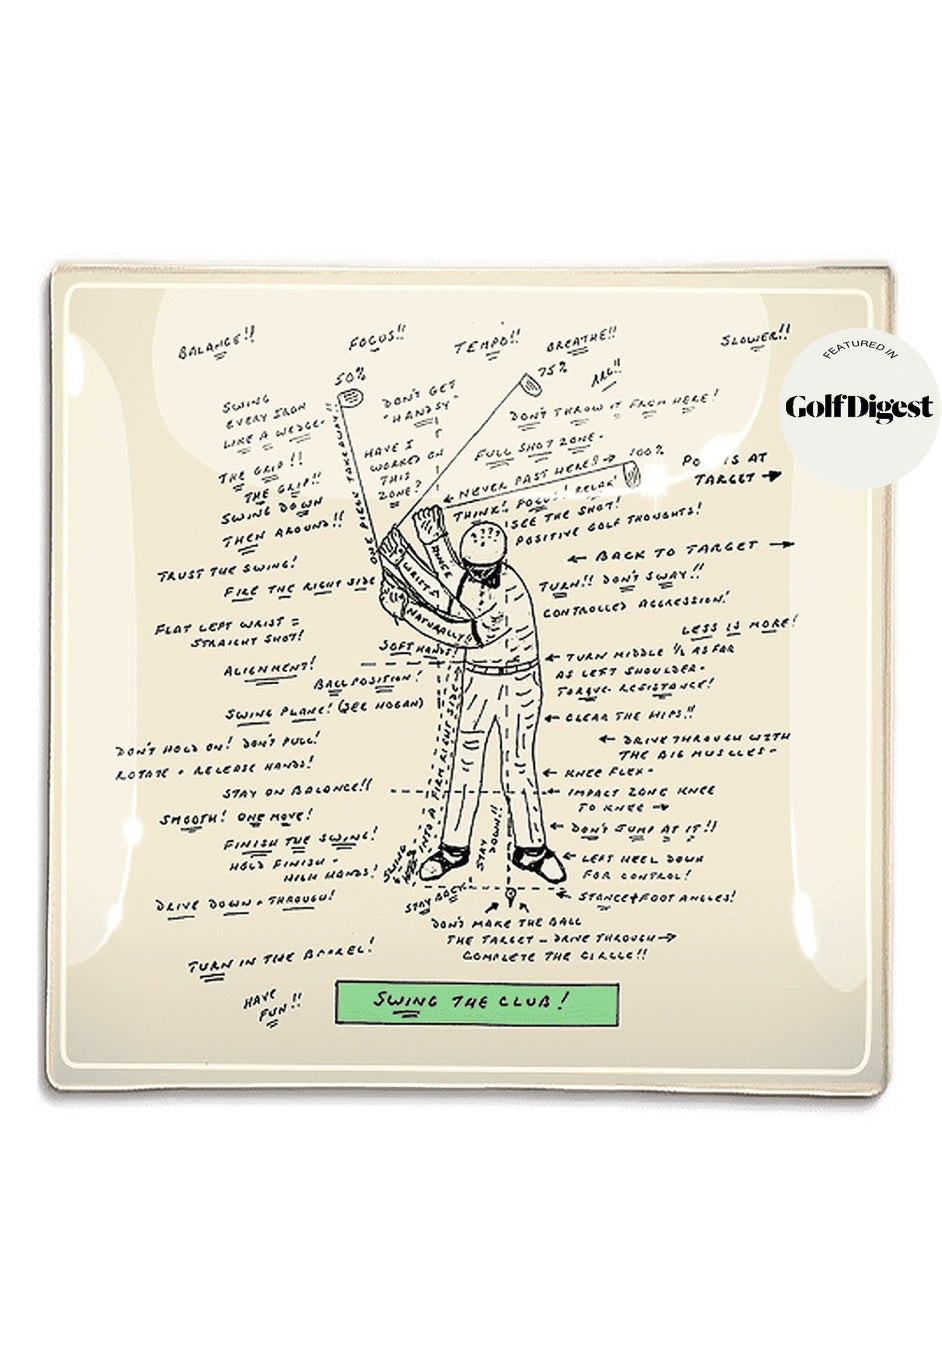 BALANCE!!
FOCUS!!
TEMPO!!
BREATHE!!
SLOWER!!
FEATURED IN
GolfDigest
50%
75%
ARG!!
SWING
EVERY IRON
LIKE A WEDGE-
DON'T GET
"HANDSY"
DON'T THROW IT FROM HERE!
ONE PIECE TAKEAWAY!!
HAVE I
WORKED ON
THIS
ZONE?
FULL SHOT ZONE-
100%
THE GRIP!!
THE GRIP!!
SWING DOWN
THEN AROUND!!
← NEVER PAST HERE!! →
THINK! FOCUS! RELAX!
SEE THE SHOT!
POSITIVE GOLF THOUGHTS!
IS AT
TARGET →
← BACK TO TARGET →
???
HINGE
WRISTS
NATURALLY!!
TRUST THE SWING!
FIRE THE RIGHT SIDE
TURN!! DON'T SWAY!!
CONTROLLED AGGRESSION!
LESS IS MORE!
FLAT LEFT WRIST =
STRAIGHT SHOT!
SOFT HANDS!
ALIGNMENT!
BALL POSITION!
← TURN MIDDLE 1/2 AS FAR
AS LEFT SHOULDER-
TORQUE- RESISTANCE!
SWING PLANE! (SEE HOGAN)
← CLEAR THE HIPS!!
DON'T HOLD ON! DON'T PULL!
ROTATE + RELEASE HANDS!
← DRIVE THROUGH WITH
THE BIG MUSCLES-
← KNEE FLEX-
STAY ON BALANCE!!
← IMPACT ZONE KNEE
TO KNEE →
SMOOTH! ONE MOVE!
SWING
INTO A FIRM RIGHT SIDE
STAY
DOWN!!
← DON'T JUMP AT IT!!
FINISH THE SWING!
HOLD FINISH -
HIGH HANDS!
← LEFT HEEL DOWN
FOR CONTROL!
DRIVE DOWN + THROUGH!
STAY BACK
← STANCE + FOOT ANGLES!
DON'T MAKE THE BALL
THE TARGET - DRIVE THROUGH →
COMPLETE THE CIRCLE!!
TURN IN THE BARREL!
HAVE
FUN!!
SWING THE CLUB!